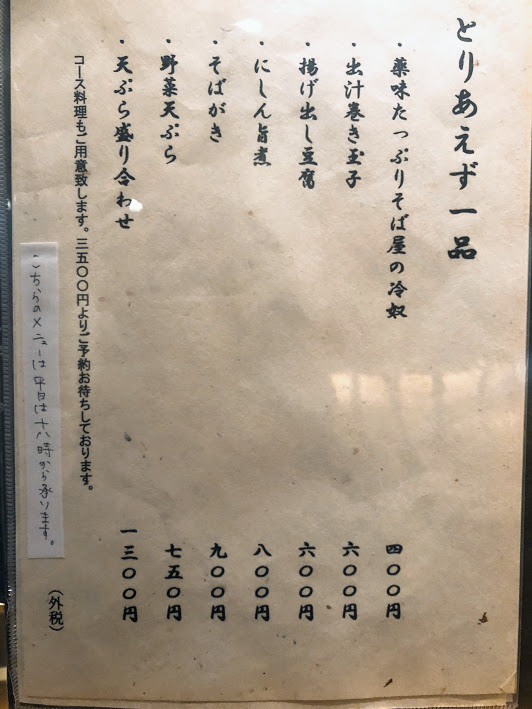 とりあえず一品
・薬味たっぷりそば屋の冷奴 四〇〇円
・出汁巻き玉子 六〇〇円
・揚げ出し豆腐 六〇〇円
・にしん旨煮 八〇〇円
・そばがき 九〇〇円
・野菜天ぷら 七五〇円
・天ぷら盛り合わせ 一三〇〇円
コース料理もご用意致します。三五〇〇円よりご予約お待ちしております。
(外税)
こちらのメニューは平日は十八時から承ります。